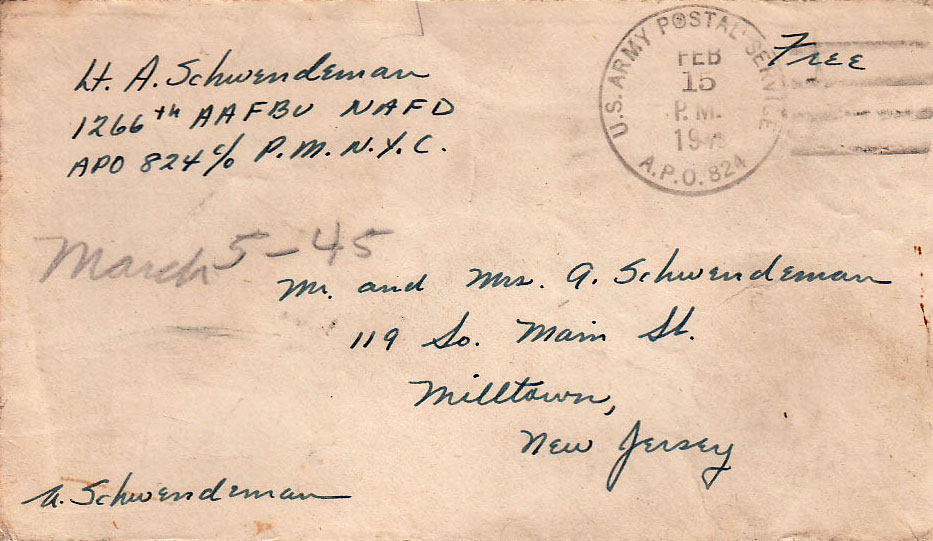 Lt. A. Schwendeman
1266th AAFBU NAFD
APO 824 c/o P.M. N.Y.C.
U.S. ARMY POSTAL SERVICE
FEB
15
P.M.
A.P.O. 824
Free
March 5-45
Mr. and Mrs. A. Schwendeman
119 So. Main St.
Milltown,
New Jersey
A. Schwendeman